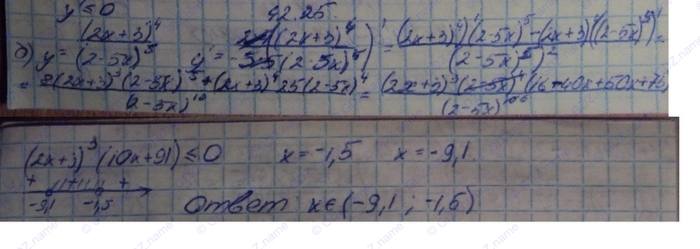 y' ≤ 0 42.25.
д) y = (2x+3)⁴/(2-5x)⁵ y' = ((2x+3)⁴/(2-5x)⁵)' = (((2x+3)⁴)'(2-5x)⁵ - (2x+3)⁴((2-5x)⁵)')/((2-5x)⁵)² =
= (8(2x+3)³(2-5x)⁵ + (2x+3)⁴25(2-5x)⁴)/(2-5x)¹⁰ = (2x+3)³(2-5x)⁴(16-40x+50x+75)/(2-5x)¹⁰
(2x+3)³(10x+91) ≤ 0 x = -1,5 x = -9,1
+ - +
-9,1 -1,5 Ответ: x∈(-9,1 ; -1,5)